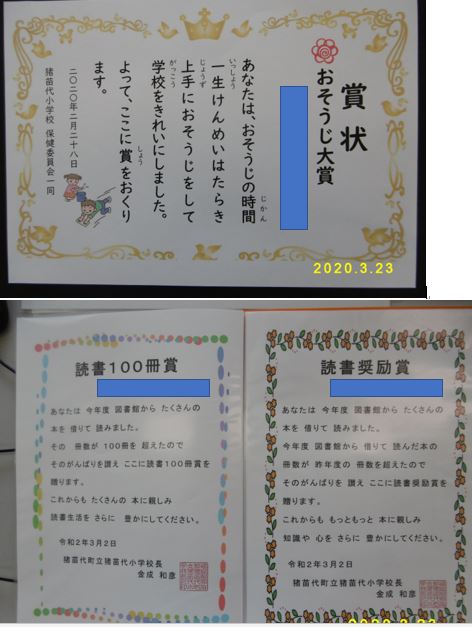 賞状
おそうじ大賞
あなたは、おそうじの時間
一生けんめいはたらき
上手におそうじをして
学校をきれいにしました。
よって、ここに賞をおくり
ます。
二〇二〇年二月二十八日
猪苗代小学校 保健委員会一同
じかん
いっしょう
じょうず
がっこう
しょう
2020.3.23
読書100冊賞
あなたは 今年度 図書館から たくさんの
本を 借りて 読みました。
その 冊数が 100冊を 超えたので
そのがんばりを讃え ここに読書100冊賞を
贈ります。
これからも たくさんの 本に親しみ
読書生活を さらに 豊かにしてください。
令和2年3月2日
猪苗代町立猪苗代小学校長
金成 和彦
読書奨励賞
あなたは 今年度 図書館から たくさんの
本を 借りて 読みました。
今年度 図書館から 借りて 読んだ本の
冊数が 昨年度の 冊数を超えたので
そのがんばりを 讃え ここに読書奨励賞を
贈ります。
これからも もっともっと 本に親しみ
知識や 心を さらに 豊かにしてください。
令和2年3月2日
猪苗代町立猪苗代小学校長
金成 和彦